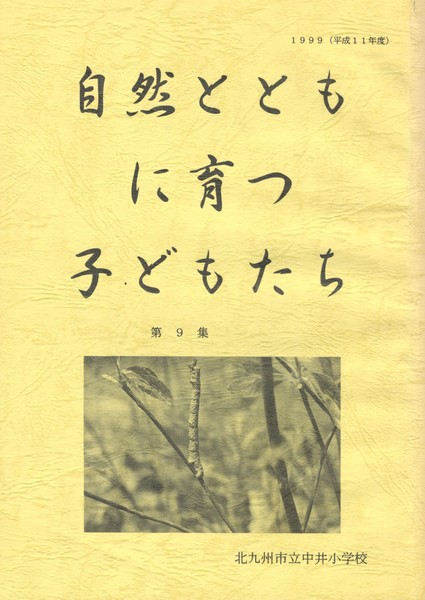 1999（平成11年度）
自然ととも
に育つ
子どもたち
第 9 集
北九州市立中井小学校